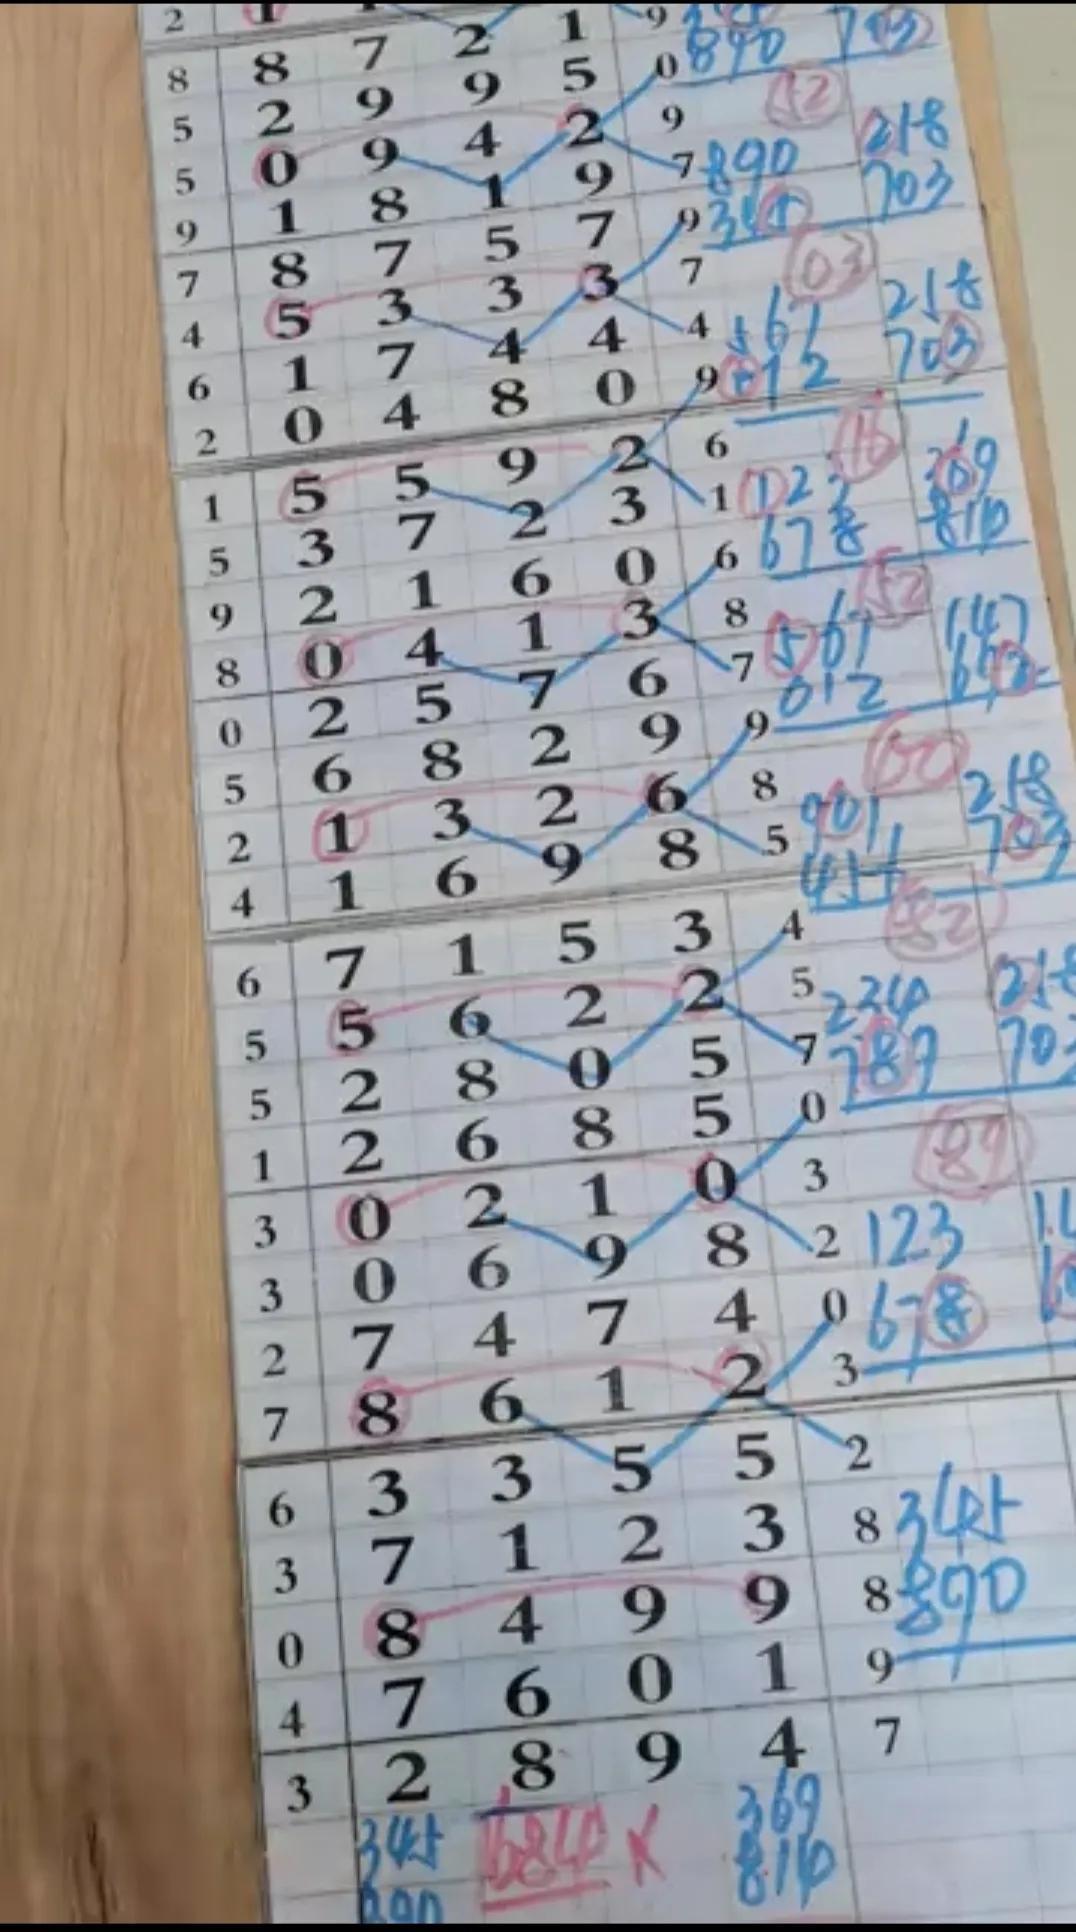 2 1 9
8 8 7 2 1 0 890 703
5 2 9 9 5 9 52
5 0 9 4 2 7 890 218
9 1 8 1 9 9 345 703
7 8 7 5 7 7 03
4 5 3 3 3 4 567 218
6 1 7 4 4 9 012 703
2 0 4 8 0 6 16
1 5 5 9 2 1 123 369
5 3 7 2 3 6 678 810
9 2 1 6 0 8 52
8 0 4 1 3 7 567 147
0 2 5 7 6 9 012
5 6 8 2 9 8
2 1 3 2 6 5 901 218
4 1 6 9 8 703
6 7 1 5 3 4 82
5 5 6 2 2 5 234 218
5 2 8 0 5 7 789 703
1 2 6 8 5 0
3 0 2 1 0 3 89
3 0 6 9 8 2 123
2 7 4 7 4 0 678
7 8 6 1 2 3
6 3 3 5 5 2
3 7 1 2 3 8 345
0 8 4 9 9 8 890
4 7 6 0 1 9
3 2 8 9 4 7
345 684 X 369
890 810